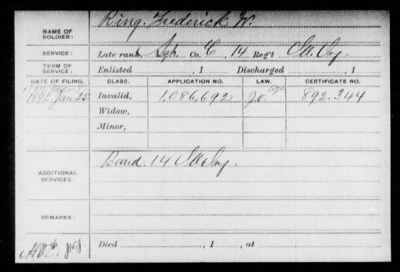 NAME OF SOLDIER: King, Frederick W.
SERVICE: Late rank, Sgt. Co. C, 14 Reg't
TERM OF SERVICE: Enlisted , 1 Discharged , 1
DATE OF FILING. CLASS. APPLICATION NO. LAW. CERTIFICATE NO.
Jan 25 Invalid, 1,086,692 892.344
Widow,
Minor,
ADDITIONAL SERVICES: Band. 14
REMARKS:
Died , 1 , at